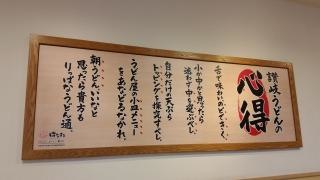 讃岐うどんの
心得
舌で味わいのどできく。
小か中かと思ったら
迷わず中を選ぶべし。
自分だけの天ぷら
トッピングを探究すべし。
うどん屋の小皿メニュー
をあなどるなかれ。
朝、うどんいいなと
思ったら貴方も
りっぱなうどん通。
はなまる